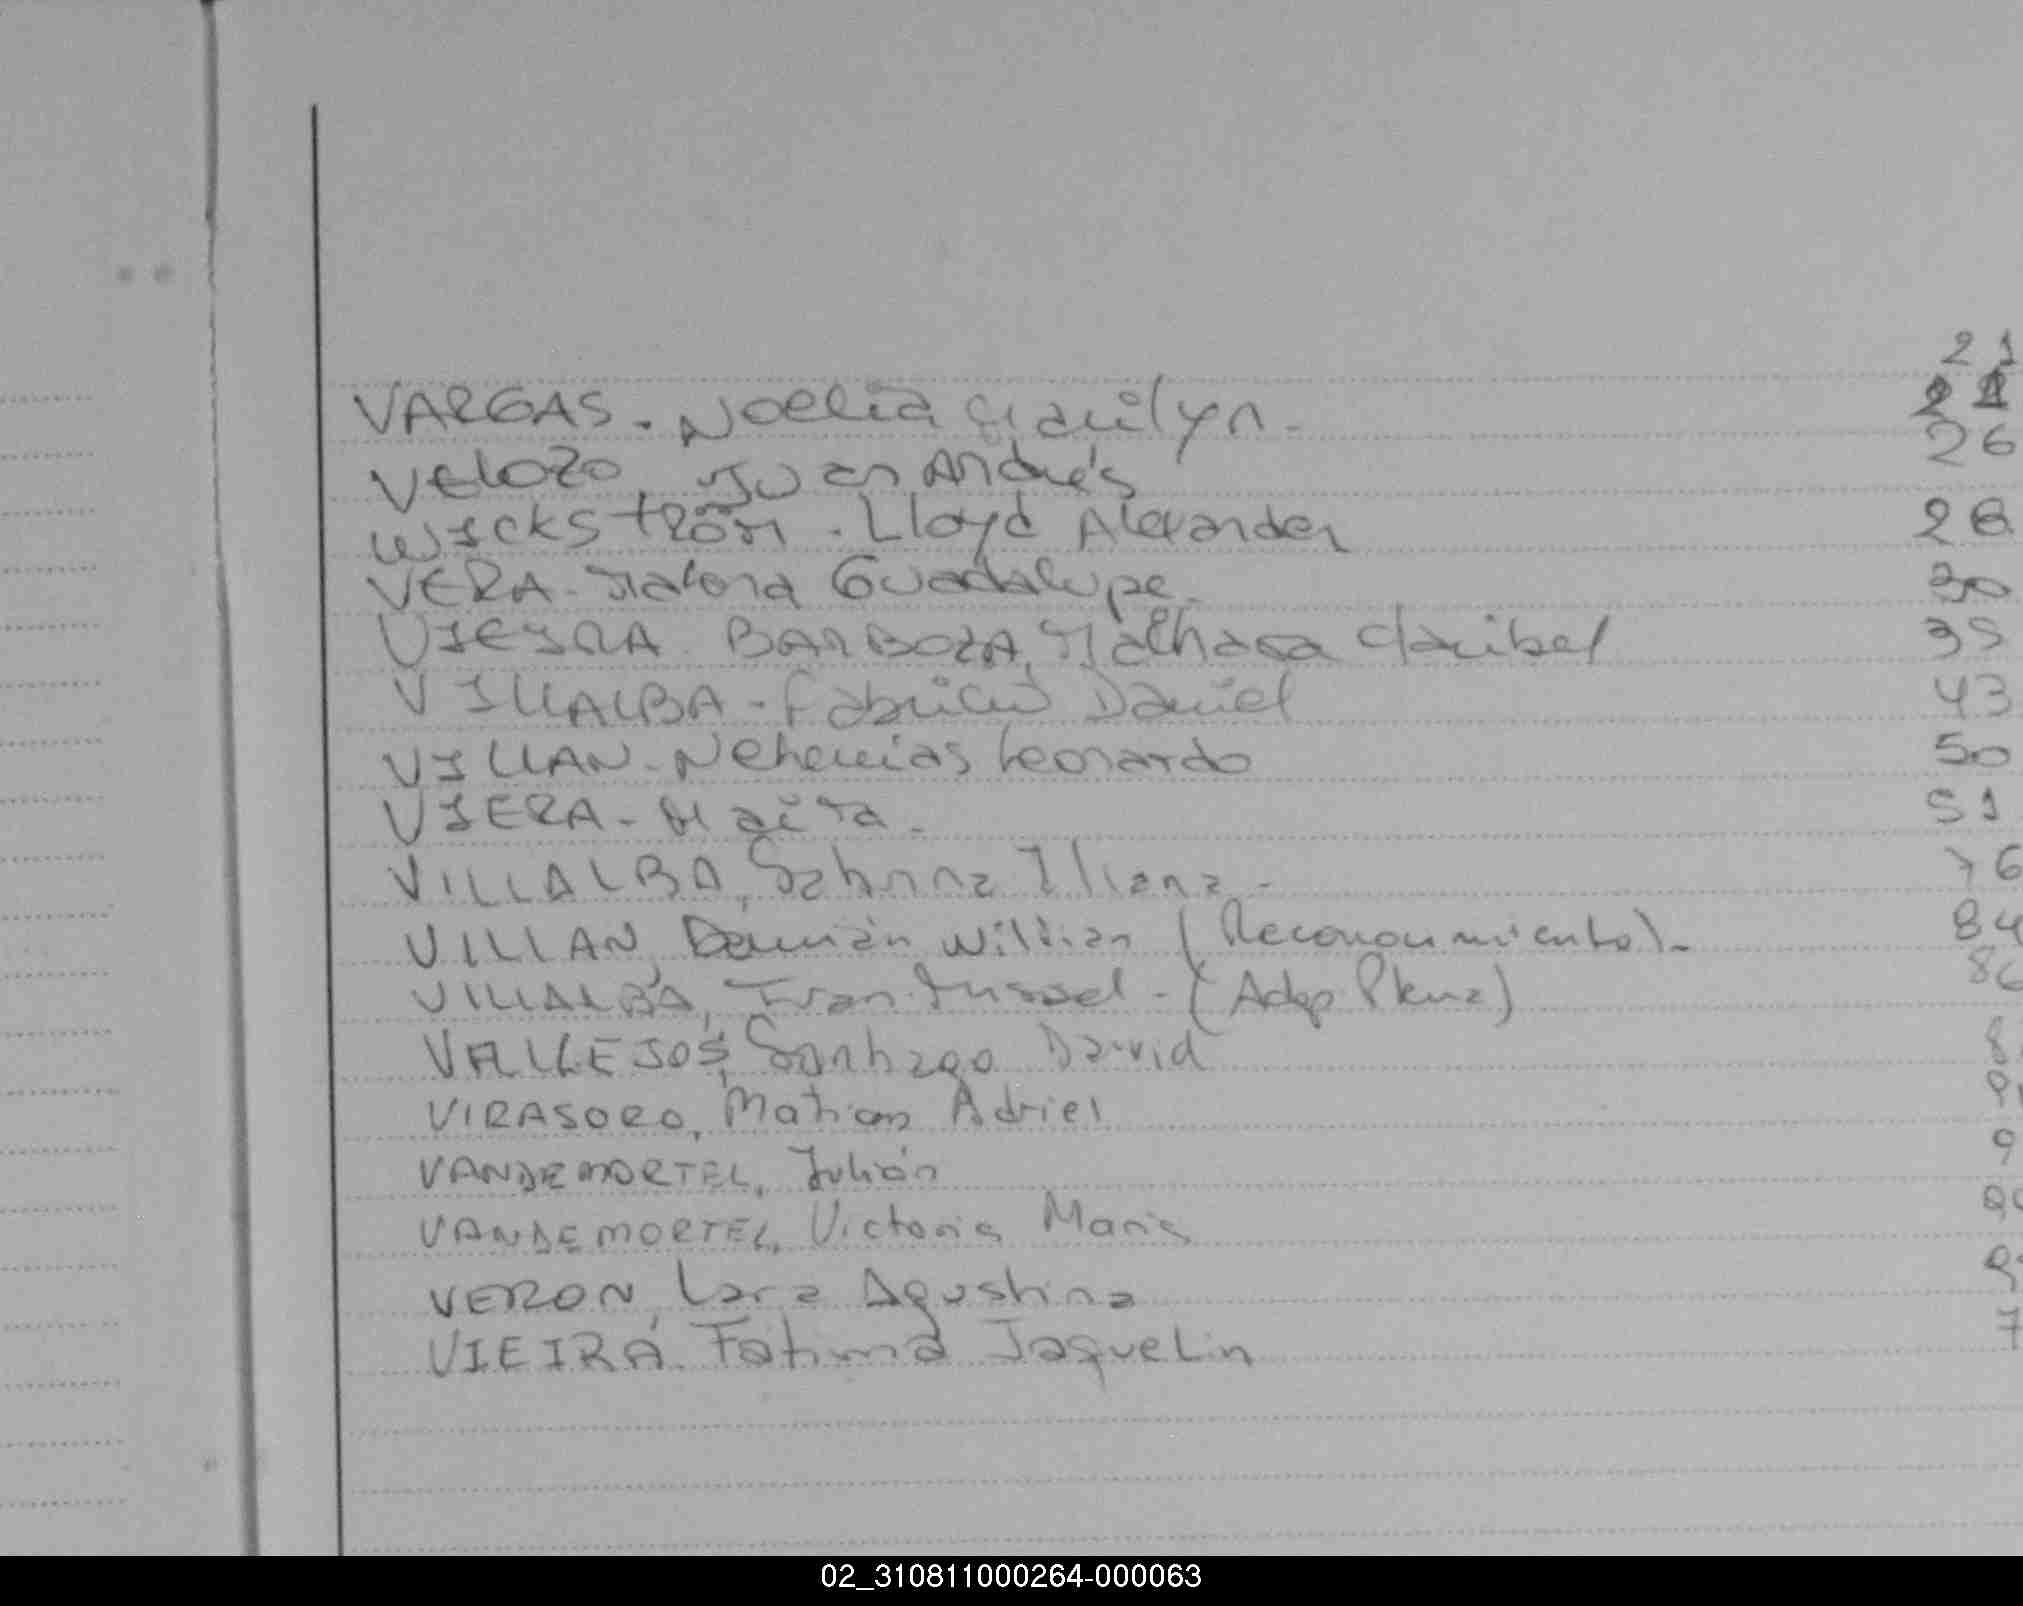 21
VARGAS. Noelia Marilyn. 21
VELOZO, Juan Andrés 26
WICKSTRÖM. Lloyd Alexander 28
VERA. Guadalupe. 30
VIEYRA BARBOZA, Maribel 35
VILLALBA - Fabricio Daniel 43
VILLAN - Nehemias Leonardo 50
VIERA - 51
VILLALBA, Sabrina Iliana - 76
VILLAN, Damián Willian (Reconocimiento). 84
VILLALBA, Ivan - (Adop Plena)
VALLEJOS, Santiago David
VIRASORO, Matias Adriel
VANDEMORTEL, Julián
VANDEMORTEL, Victoria Maria
VERON, Lara Agustina
VIEIRA. Fatima Jaquelin
02_310811000264-000063